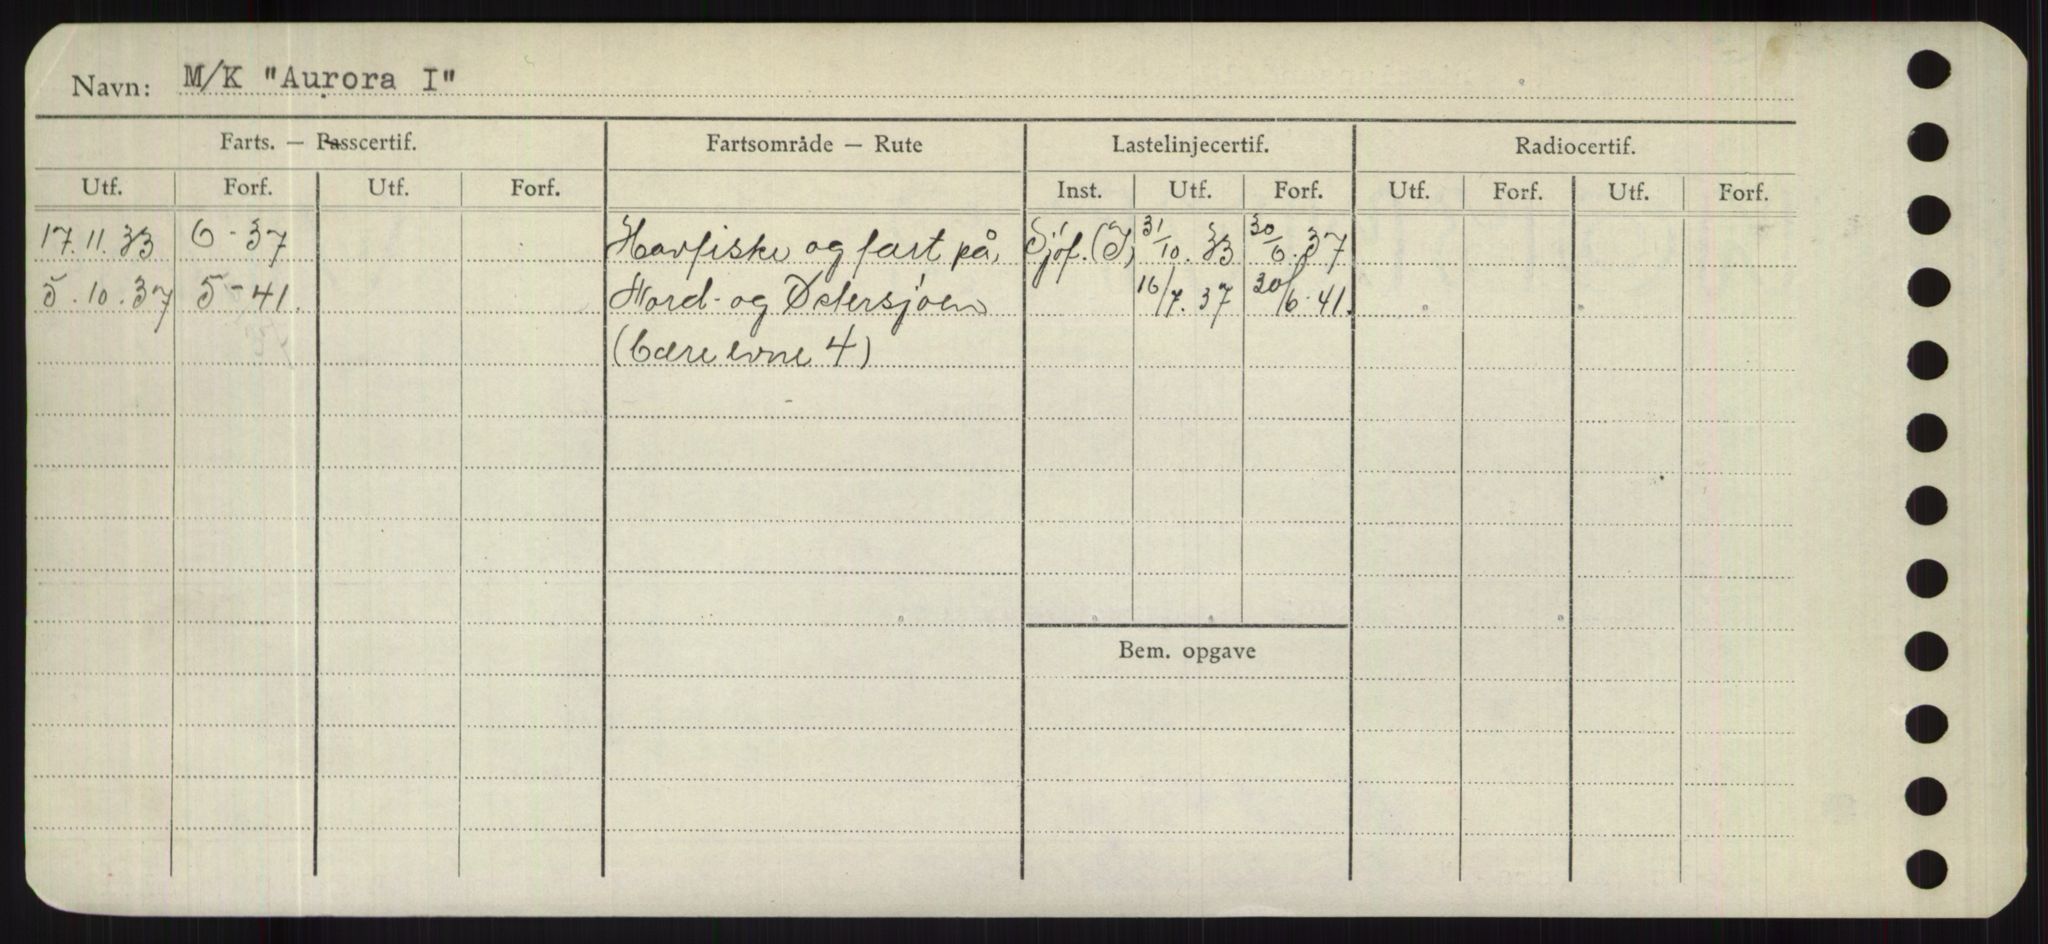 Navn: M/K "Aurora I"
Farts. — Passcertif. Fartsområde — Rute Lastelinjecertif. Radiocertif.
Utf. Forf. Utf. Forf. Inst. Utf. Forf. Utf. Forf. Utf. Forf.
17.11.33 6-37 Havfiske og fart på Sjöf.(I) 31/10.33 30/6.37
5.10.37 5-41. Nord- og Østersjøen 16/7.37 30/6.41.
(bæreevne 4)
Bem. opgave